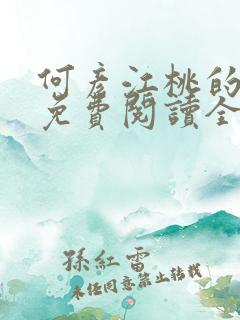 何彥江桃的
免費閱讀全
孫紅雷
未經同意禁止轉載